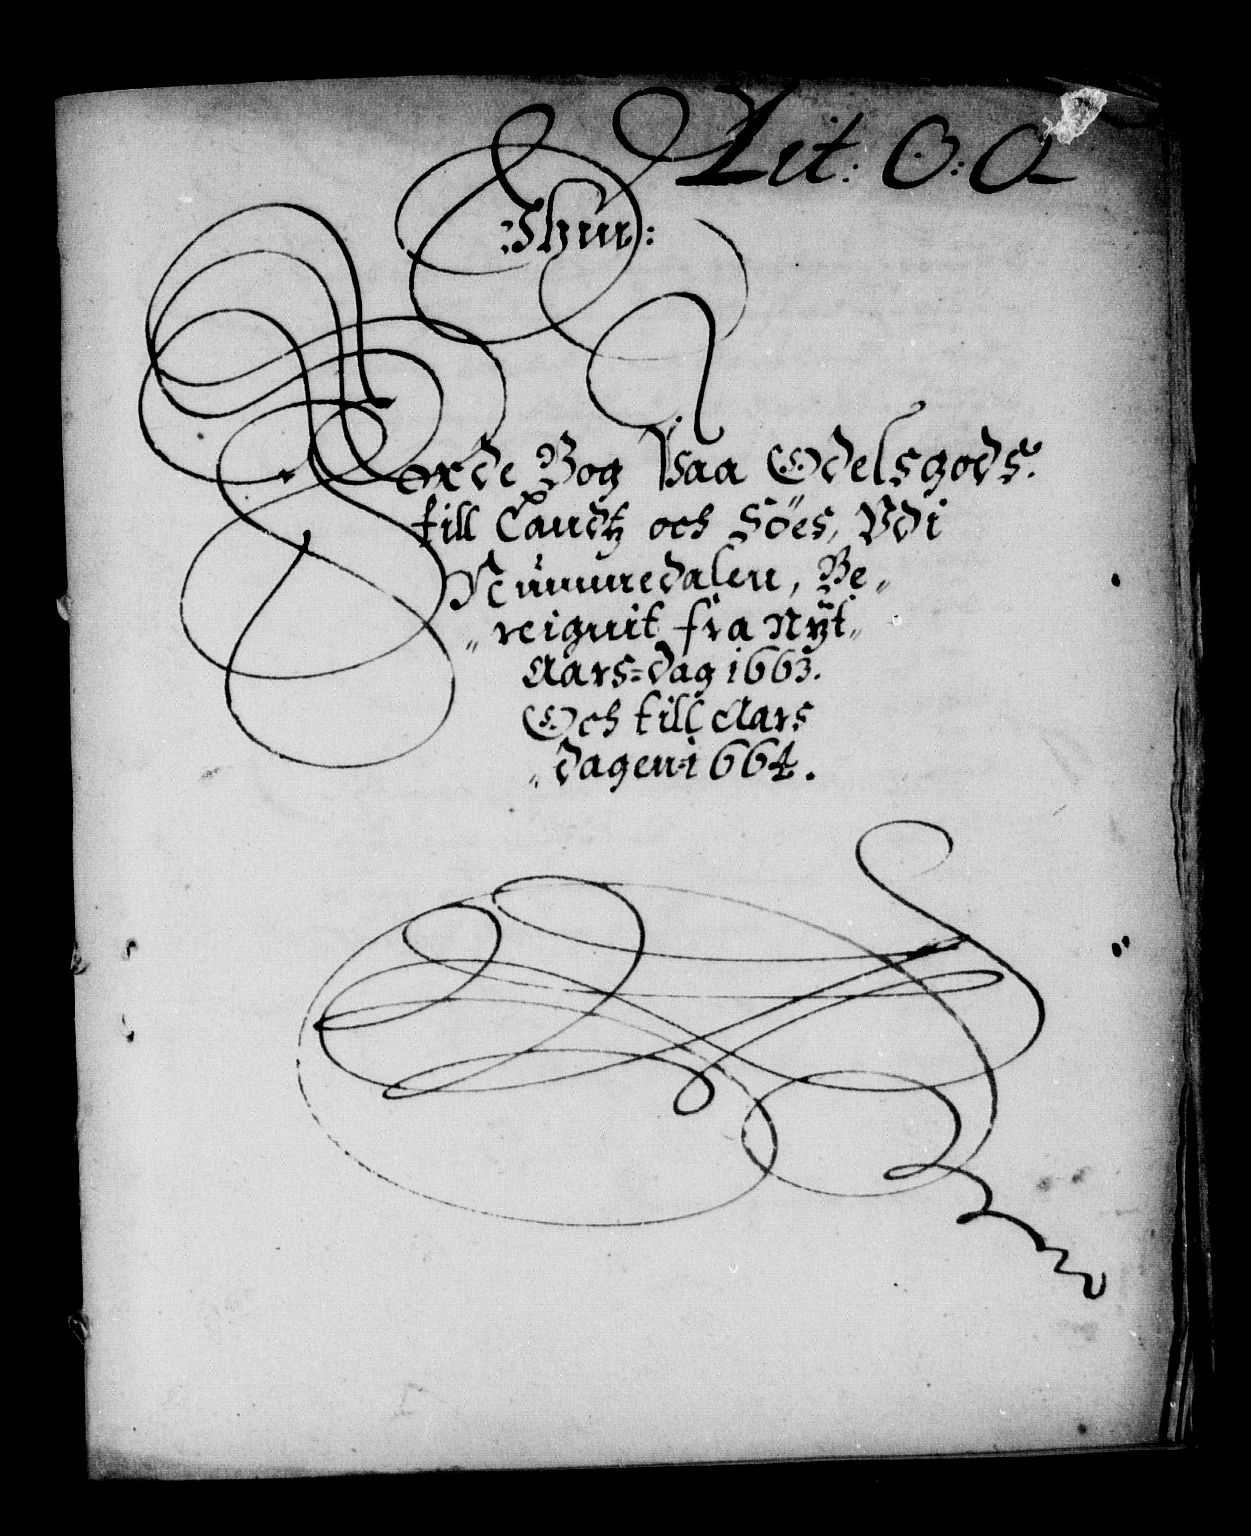 Lit: O: O
:Ihui:
Jorde Bog Paa Odelsgods.
till Landtz och Söes, Vdi
Nummedalen, Be„
„reignit fra Nyt„
Aars=dag 1663.
Och till Aars
„dagen 1664.